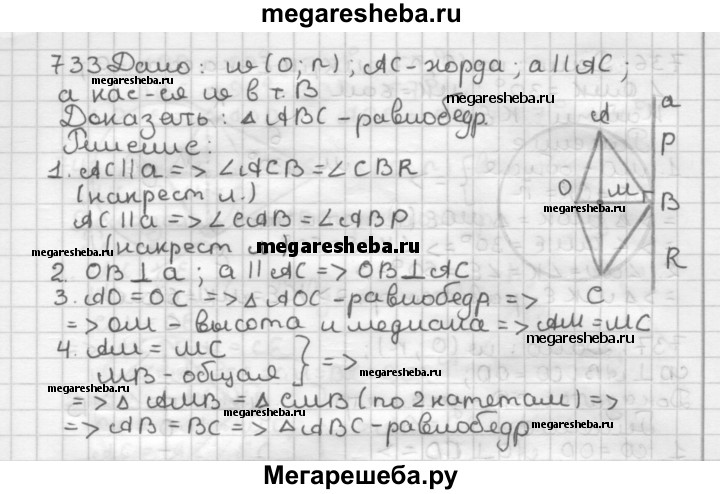 megaresheba.ru
733 Дано: w(O; r); AC - хорда; a || AC;
megaresheba.ru
a кас-ся w в т. B
megaresheba.ru
Доказать: △ABC - равнобедр.
Решение:
1. AC || a => ∠ACB = ∠CBR
(накрест л.)
AC || a => ∠CAB = ∠ABP
(накрест л.)
megaresheba.ru
megaresheba.ru
megaresheba.ru
2. OB ⊥ a; a || AC => OB ⊥ AC
3. AO = OC => △AOC - равнобедр =>
megaresheba.ru
megaresheba.ru
=> OM - высота и медиана => AM = MC
megaresheba.ru
4. AM = MC
MB - общая } =>
megaresheba.ru
megaresheba.ru
=> △ AMB = △ CMB (по 2 катетам) =>
megaresheba.ru
=> AB = BC => △ABC - равнобедр
megaresheba.ru
A
a
P
O
M
B
R
C
Мегарешеба.ру